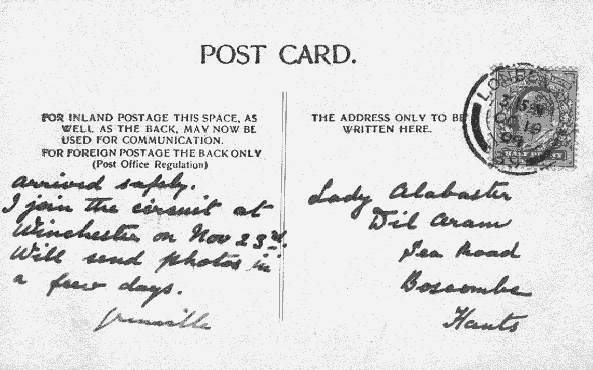 POST CARD.
FOR INLAND POSTAGE THIS SPACE, AS
WELL AS THE BACK, MAY NOW BE
USED FOR COMMUNICATION.
FOR FOREIGN POSTAGE THE BACK ONLY
(Post Office Regulation)
arrived safely.
I join the circuit at
Winchester on Nov 23rd.
Will send photos in
a few days.
Grenville
THE ADDRESS ONLY TO BE
WRITTEN HERE.
Lady Alabaster
Dil Aram
Sea Road
Boscombe
Hants
LONDON